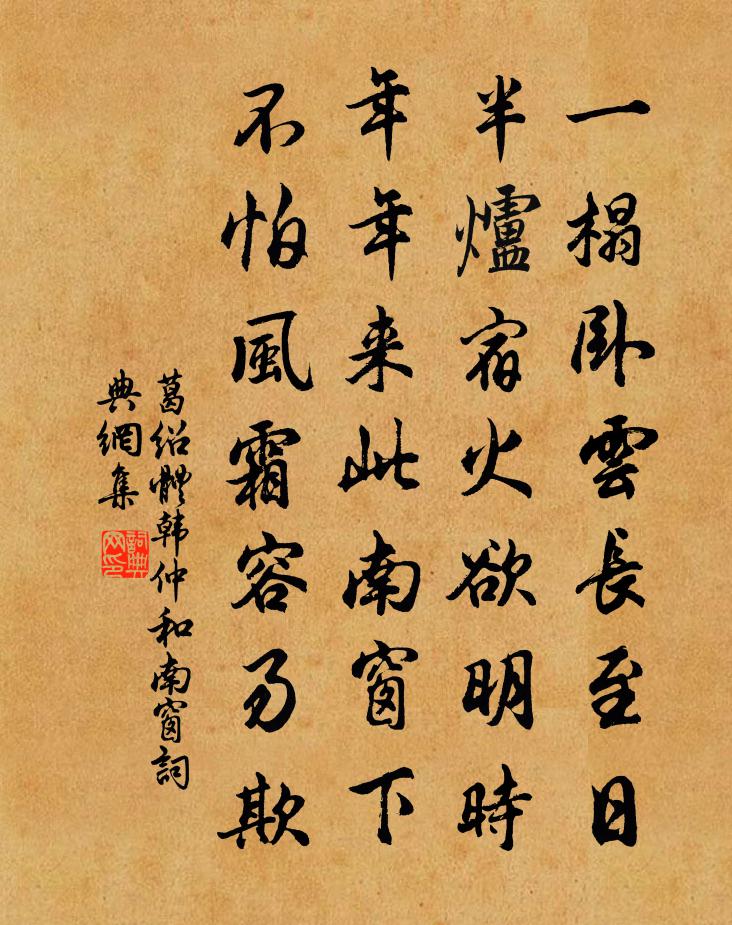 一榻卧雲長至日
半爐宿火欲明時
年年来此南窗下
不怕風霜容易欺
葛绍體韩仲和南窗詞
典網集
詞典網印